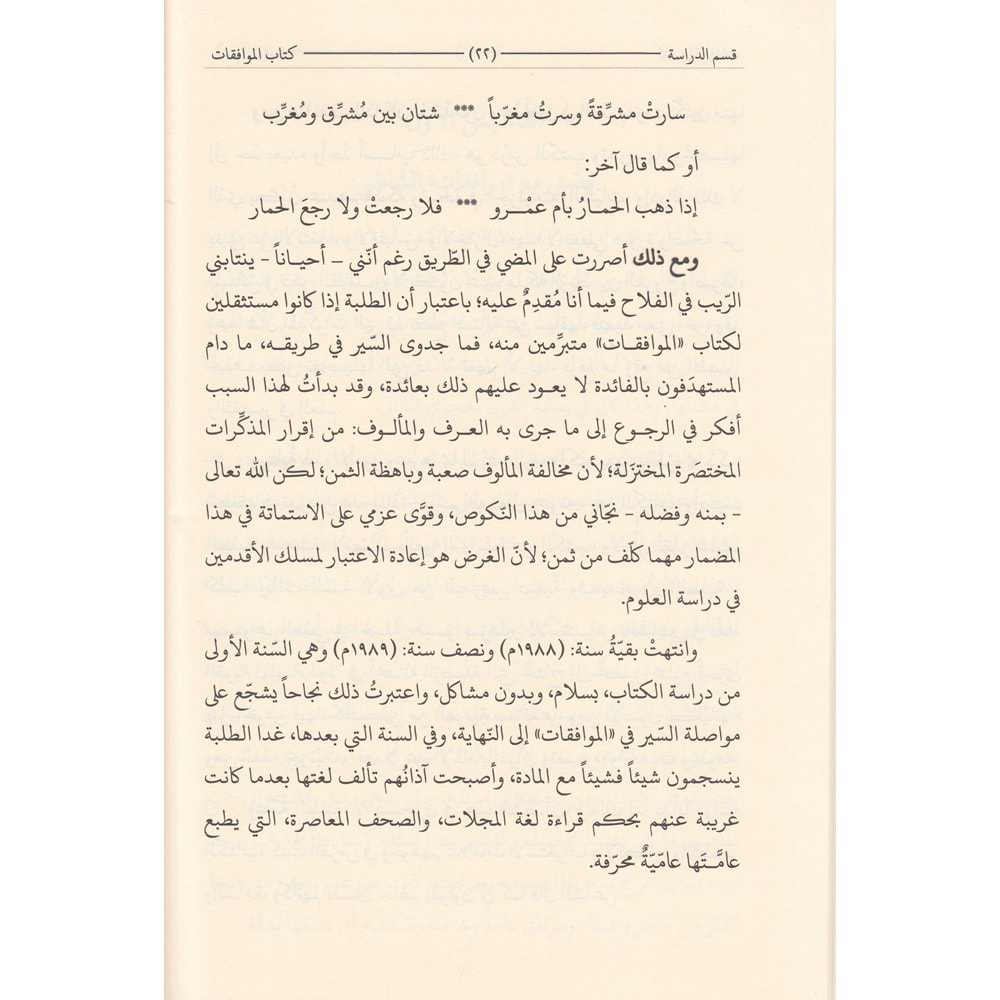 قسم الدراسة (٢٢) كتاب الموافقات
سارتْ مشرِّقةً وسرتُ مغرّباً *** شتان بين مُشرِّق ومُغرِّب
أو كما قال آخر:
إذا ذهب الحمـارُ بأم عمْـرو *** فلا رجعتْ ولا رجعَ الحمار
ومع ذلك أصررت على المضي في الطّريق رغم أنّني – أحيـاناً - ينتابني
الرّيب في الفلاح فيما أنا مُقدِمٌ عليه؛ باعتبار أن الطلبة إذا كانوا مستثقلين
لكتاب «الموافقـات» متبرِّمين منه، فما جدوى السّير في طريقـه، ما دام
المستهدَفون بالفائدة لا يعـود عليهم ذلك بعائدة، وقد بدأتُ لهذا السبب
أفكر في الرجـوع إلى ما جرى به العـرف والمألـوف: من إقرار المذكِّرات
المختصَرة المختزَلة؛ لأن مخالفة المألوف صعبة وباهظة الثمن؛ لكن الله تعالى
- بمنه وفضله - نجّاني من هذا النّكوص، وقوَّى عزمي على الاستماتة في هذا
المضمار مهما كلّف من ثمن؛ لأنّ الغرض هو إعادة الاعتبار لمسلك الأقدمين
في دراسة العلوم.
وانتهتْ بقيّةُ سنة: (١٩٨٨م) ونصف سنة: (١٩٨٩م) وهي السّنة الأولى
من دراسة الكتاب، بسلام، وبدون مشاكل، واعتبرتُ ذلك نجاحاً يشجّع على
مواصلة السّير في «الموافقات» إلى النهاية، وفي السنة التي بعدها، غدا الطلبة
ينسجمون شيئاً فشيئاً مع المادة، وأصبحت آذانُهم تألف لغتها بعدما كانت
غريبة عنهم بحكم قراءة لغة المجلات، والصحف المعاصرة، التي يطبع
عامَّـتَها عاميّةٌ محرّفة.